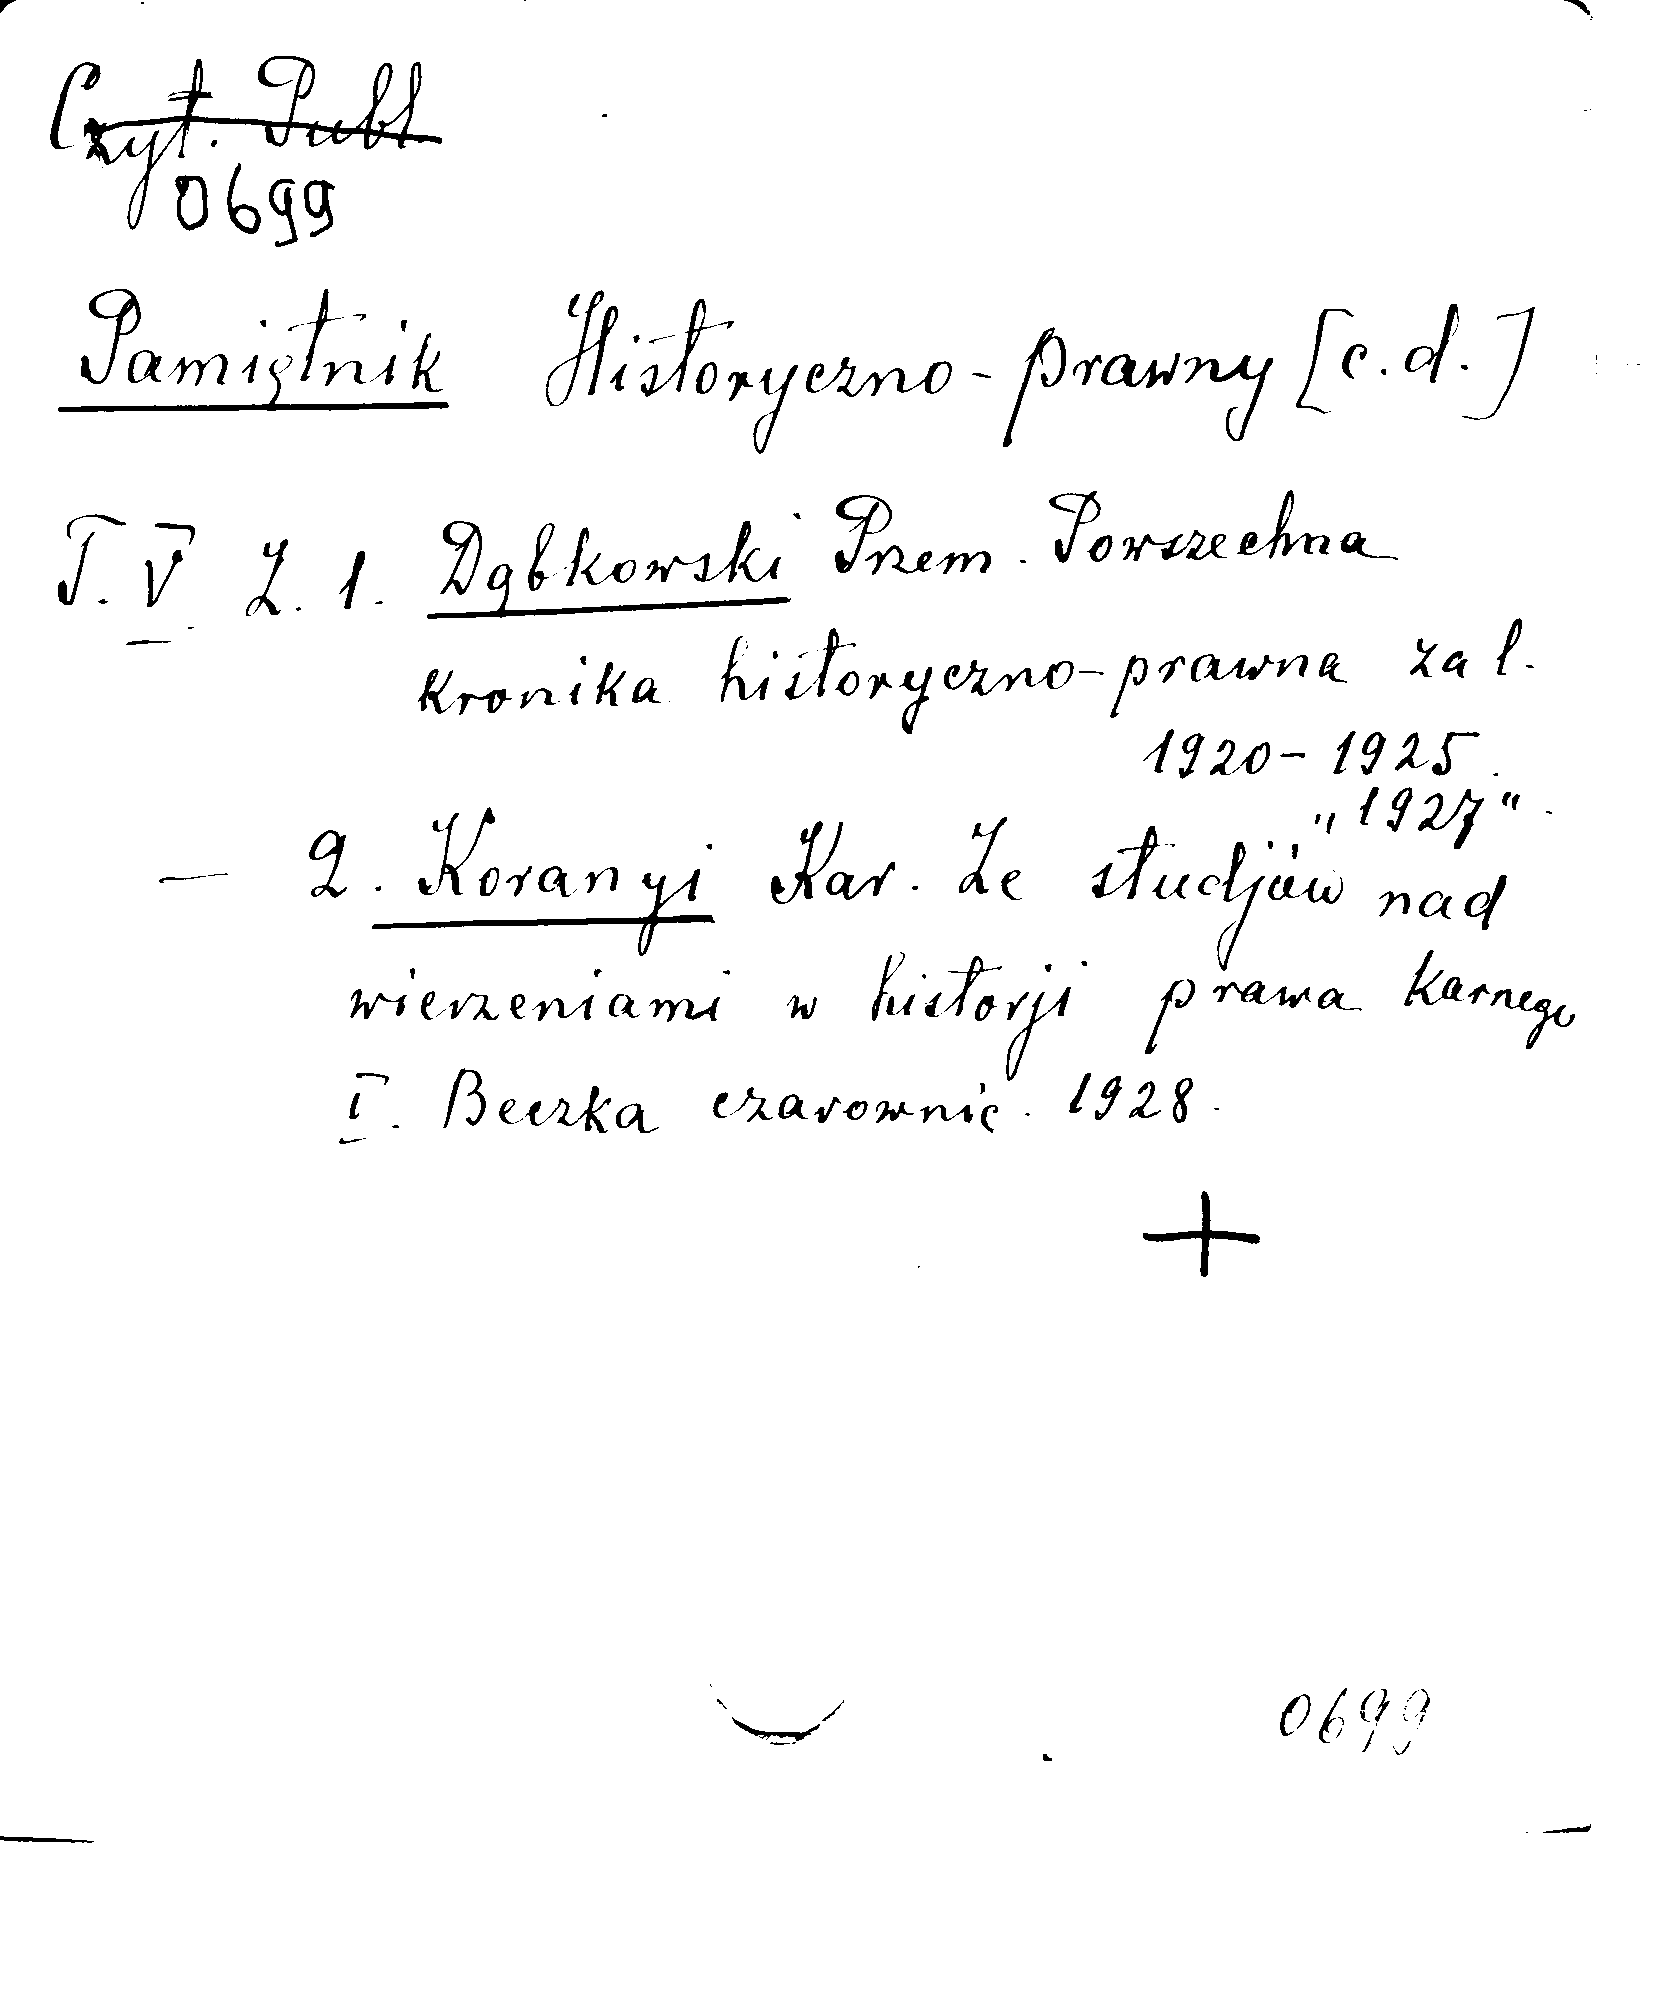 Czyt. Publ
0699
Pamiętnik Historyczno-prawny [c.d.]
T. V Z. 1. Dąbkowski Przem. Powszechna
kronika historyczno-prawna za l.
1920-1925.
"1927".
— 2. Koranyi Kar. Ze studjów nad
wierzeniami w historji prawa karnego
I. Beczka czarownic. 1928.
+
0699